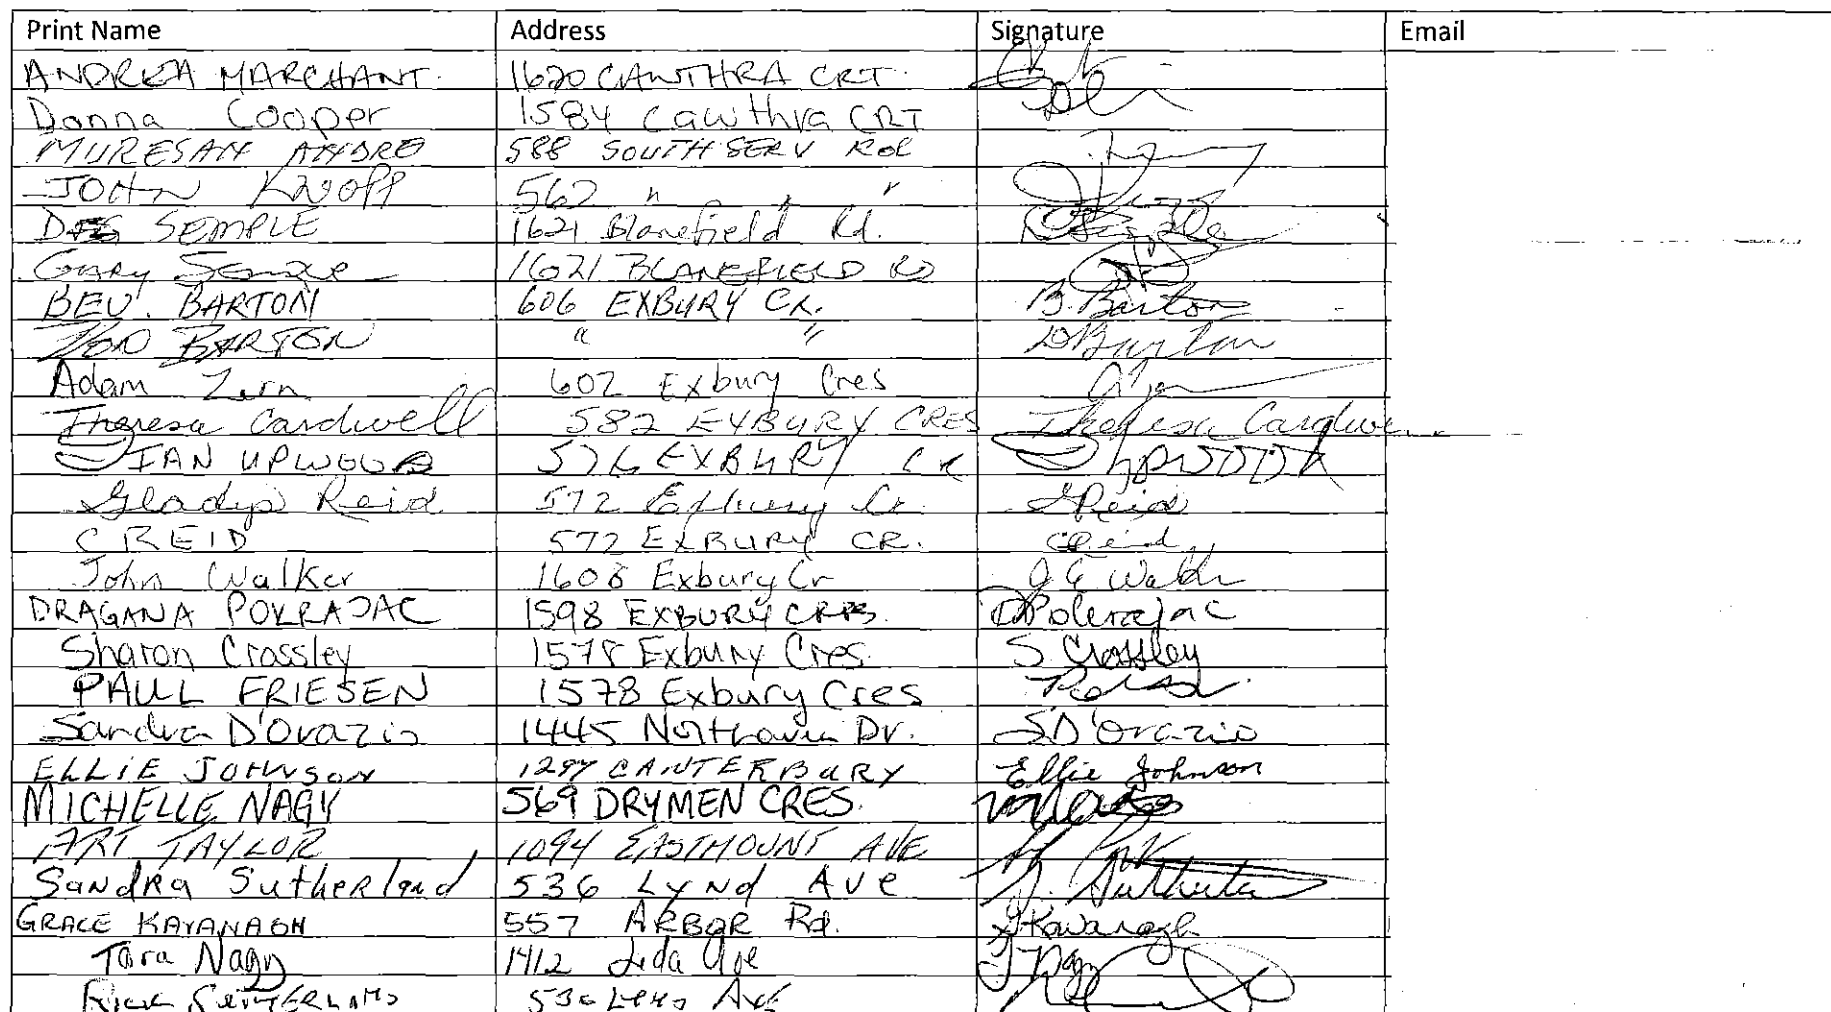 Print Name Address Signature Email
ANDREA MARCHANT. 1620 CAWTHRA CRT.
Donna Cooper 1584 Cawthra CRT
MURESAN ANDRO 588 SOUTH SERV Rd
JOHN Knoff 562 " " "
SEMPLE 1621 Blanefield Rd.
Gary Semple 1621 BLANEFIELD RD
BEV. BARTON 606 EXBURY CR. B. Barton
BARTON " " D Barton
Adam Zern 602 Exbury Cres
Theresa Cardwell 582 EXBURY CRES Theresa Cardwe
IAN UPWOOD 576 EXBURY CR UPWOOD
Gladys Reid 572 Exbury Cr. G Reid
C REID 572 EXBURY CR. C Reid
John Walker 1608 Exbury Cr J G Walker
DRAGANA POKRAJAC 1598 EXBURY CRES. D Pokrajac
Sharon Crossley 1578 Exbury Cres. S. Crossley
PAUL FRIESEN 1578 Exbury Cres
Sandra D'Orazio 1445 Northaven Dr. S D'Orazio
ELLIE JOHNSON 1297 CANTERBURY Ellie Johnson
MICHELLE NAGY 569 DRYMEN CRES.
ART TAYLOR 1094 EASTMOUNT AVE
Sandra Sutherland 536 Lynd Ave S. Sutherla
GRACE KAVANAGH 557 ARBOR Rd. G Kavanagh
Tara Nagy 1412 Leda Ave T Nagy
Rick SUTHERLAND 536 LYND AVE